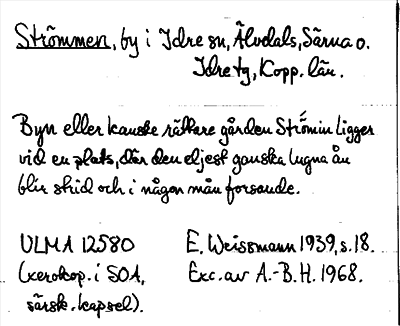 Strömmen, by i Idre sn, Älvdals, Särna o.
Idre tg, Kopp. län.
Byn eller kanske rättare gården Strömin ligger
vid en plats, där den eljest ganska lugna ån
blir strid och i någon mån forsande.
ULMA 12580 E. Weissmann 1939, s. 18.
(xerokop. i SOA, Exc. av A.-B. H. 1968.
särsk. kapsel).